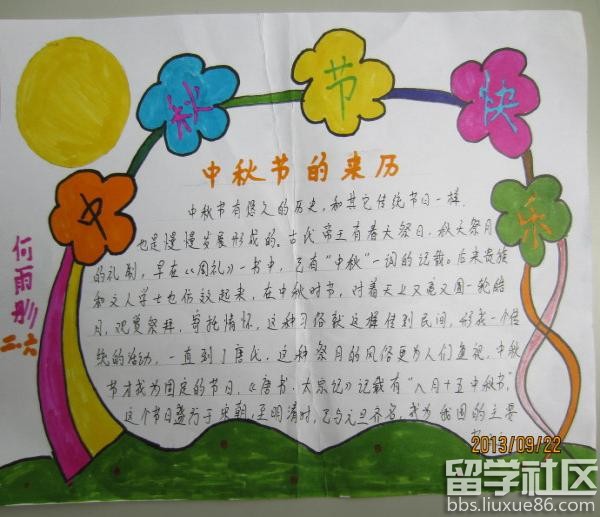 中秋节快乐
中秋节的来历
中秋节有悠久的历史，和其它传统节日一样，
也是慢慢发展形成的。古代帝王有春天祭日，秋天祭月
的礼制，早在《周礼》一书中，已有“中秋”一词的记载。后来贵族
和文人学士也仿效起来，在中秋时节，对着天上又亮又圆一轮皓
月，观赏祭拜，寄托情怀，这种习俗就这样传到民间，形成一个传
统的活动，一直到了唐代，这种祭月的风俗更为人们重视，中秋
节才成为固定的节日，《唐书·太宗记》记载有“八月十五中秋节”，
这个节日盛行于宋朝，至明清时，已与元旦齐名，成为我国的主要
何雨彤
二.六
2013/09/22
留学社区
bbs.liuxue86.com